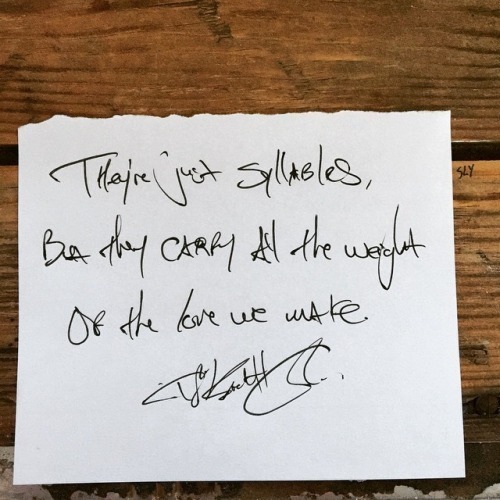 They're just syllables,
SLY
But they carry all the weight
Of the love we make.